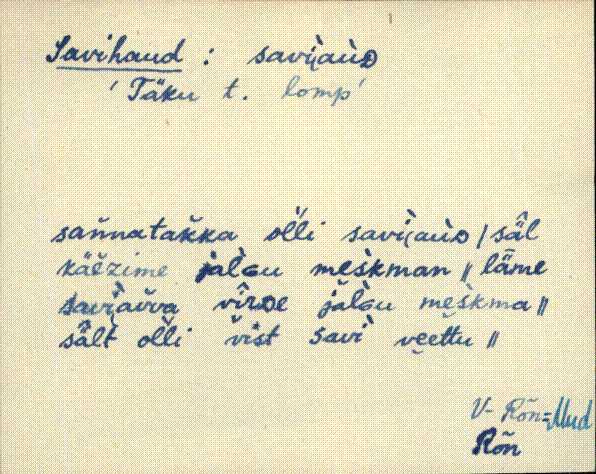 Savihaud : savi̯aùᴅ
'Täku t. lomp'
sañnatak̆ka ol̆li savi̯aùᴅ / säl
käe̮zime jal̀ɢu meśkman // läme
savi̯aŭva vîrᴅe jàlɢu meśkma //
sält ol̆li vist savì veettu //
V- Rõn = Mud
Rõn